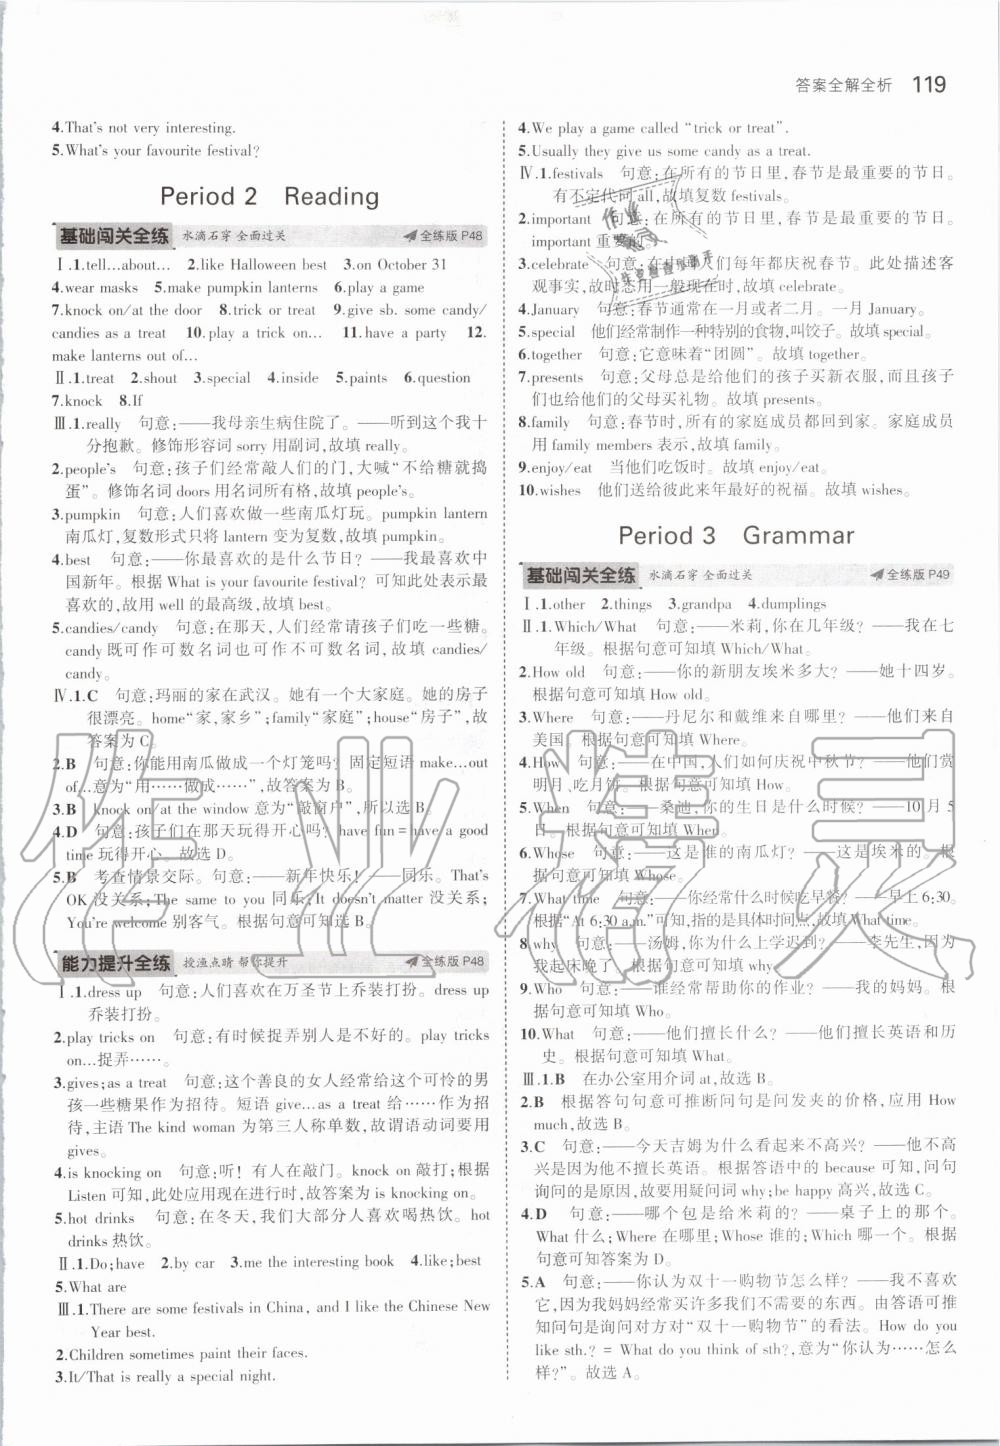 答案全解全析 119
4.That's not very interesting.
5.What's your favourite festival?
Period 2 Reading
基础闯关全练 水滴石穿 全面过关 全练版 P48
Ⅰ.1.tell…about… 2.like Halloween best 3.on October 31
4.wear masks 5.make pumpkin lanterns 6.play a game
7.knock on/at the door 8.trick or treat 9.give sb. some candy/
candies as a treat 10.play a trick on… 11.have a party 12.
make lanterns out of…
Ⅱ.1.treat 2.shout 3.special 4.inside 5.paints 6.question
7.knock 8.If
Ⅲ.1.really 句意:——我母亲生病住院了。——听到这个我十
分抱歉。修饰形容词 sorry 用副词,故填 really。
2.people's 句意:孩子们经常敲人们的门,大喊“不给糖就捣
蛋”。修饰名词 doors 用名词所有格,故填 people's。
3.pumpkin 句意:人们喜欢做一些南瓜灯玩。pumpkin lantern
南瓜灯,复数形式只将 lantern 变为复数,故填 pumpkin。
4.best 句意:——你最喜欢的是什么节日?——我最喜欢中
国新年。根据 What is your favourite festival? 可知此处表示最
喜欢的,故用 well 的最高级,故填 best。
5.candies/candy 句意:在那天,人们经常请孩子们吃一些糖。
candy 既可作可数名词也可作不可数名词,故填 candies/
candy。
Ⅳ.1.C 句意:玛丽的家在武汉。她有一个大家庭。她的房子
很漂亮。home“家,家乡”;family“家庭”;house“房子”,故
答案为 C。
2.B 句意:你能用南瓜做成一个灯笼吗?固定短语 make…out
of…意为“用……做成……”,故答案为 B。
3.B knock on/at the window 意为“敲窗户”,所以选 B。
4.D 句意:孩子们在那天玩得开心吗?have fun = have a good
time 玩得开心。故选 D。
5.B 考查情景交际。句意:——新年快乐!——同乐。That's
OK 没关系;The same to you 同乐;It doesn't matter 没关系;
You're welcome 别客气。根据句意可知选 B。
能力提升全练 授渔点睛 帮你提升 全练版 P48
Ⅰ.1.dress up 句意:人们喜欢在万圣节上乔装打扮。dress up
乔装打扮。
2.play tricks on 句意:有时候捉弄别人是不好的。play tricks
on…捉弄……。
3.gives;as a treat 句意:这个善良的女人经常给这些可爱的男
孩一些糖果作为招待。短语 give…as a treat 给……作为招
待,主语 The kind woman 为第三人称单数,故谓语动词要用
gives。
4.is knocking on 句意:听!有人在敲门。knock on 敲打;根据
Listen 可知,此处应用现在进行时,故答案为 is knocking on。
5.hot drinks 句意:在冬天,我们大部分人喜欢喝热饮。hot
drinks 热饮。
Ⅱ.1.Do;have 2.by car 3.me the interesting book 4.like;best
5.What are
Ⅲ.1.There are some festivals in China, and I like the Chinese New
Year best.
2.Children sometimes paint their faces.
3.It/That is really a special night.
4.We play a game called “trick or treat”.
5.Usually they give us some candy as a treat.
Ⅳ.1.festivals 句意:在所有的节日里,春节是最重要的节日。
有不定代词 all,故填复数 festivals。
2.important 句意:在所有的节日里,春节是最重要的节日。
important 重要的。
3.celebrate 句意:在中国人们每年都庆祝春节。此处描述客
观事实,故时态用一般现在时,故填 celebrate。
4.January 句意:春节通常在一月或者二月。一月 January。
5.special 他们经常制作一种特别的食物,叫饺子。故填 special。
6.together 句意:它意味着“团圆”。故填 together。
7.presents 句意:父母总是给他们的孩子买新衣服,而且孩子
们也给他们的父母买礼物。故填 presents。
8.family 句意:春节时,所有的家庭成员都回到家。家庭成员
用 family members 表示,故填 family。
9.enjoy/eat 当他们吃饭时。故填 enjoy/eat。
10.wishes 他们送给彼此来年最好的祝福。故填 wishes。
Period 3 Grammar
基础闯关全练 水滴石穿 全面过关 全练版 P49
Ⅰ.1.other 2.things 3.grandpa 4.dumplings
Ⅱ.1.Which/What 句意:——米莉,你在几年级?——我在七
年级。根据句意可知填 Which/What。
2.How old 句意:——你的新朋友埃米多大?——她十四岁。
根据句意可知填 How old。
3.Where 句意:——丹尼尔和戴维来自哪里?——他们来自
美国。根据句意可知填 Where。
4.How 句意:——在中国,人们如何庆祝中秋节?——他们赏
明月、吃月饼。根据句意可知填 How。
5.When 句意:——桑迪,你的生日是什么时候?——10 月 5
日。根据句意可知填 When。
6.Whose 句意:——这是谁的南瓜灯?——这是埃米的。根
据句意可知填 Whose。
7.What time 句意:——你经常什么时候吃早餐?——早上 6:30。
根据“At 6:30 a.m.”可知,指的是具体时间点,故填 What time。
8.why 句意:——汤姆,你为什么上学迟到?——李先生,因为
我起床晚了。根据句意可知填 why。
9.Who 句意:——谁经常帮助你的作业?——我的妈妈。根
据句意可知填 Who。
10.What 句意:——他们擅长什么?——他们擅长英语和历
史。根据句意可知填 What。
Ⅲ.1.B 在办公室用介词 at,故选 B。
2.B 根据答句句意可推断问句是问发夹的价格,应用 How
much,故选 B。
3.C 句意:——今天吉姆为什么看起来不高兴?——他不高
兴是因为他不擅长英语。根据答语中的 because 可知,问句
询问的是原因,故要用疑问词 why;be happy 高兴,故选 C。
4.D 句意:——哪个包是给米莉的?——桌子上的那个。
What 什么;Where 在哪里;Whose 谁的;Which 哪一个。根据
句意可知答案为 D。
5.A 句意:——你认为双十一购物节怎么样?——我不喜欢
它,因为我妈妈经常买许多我们不需要的东西。由答语可推
知问句是询问对方对“双十一购物节”的看法。How do you
like sth.? = What do you think of sth?,意为“你认为……怎么
样?”。故选 A。
作业精灵